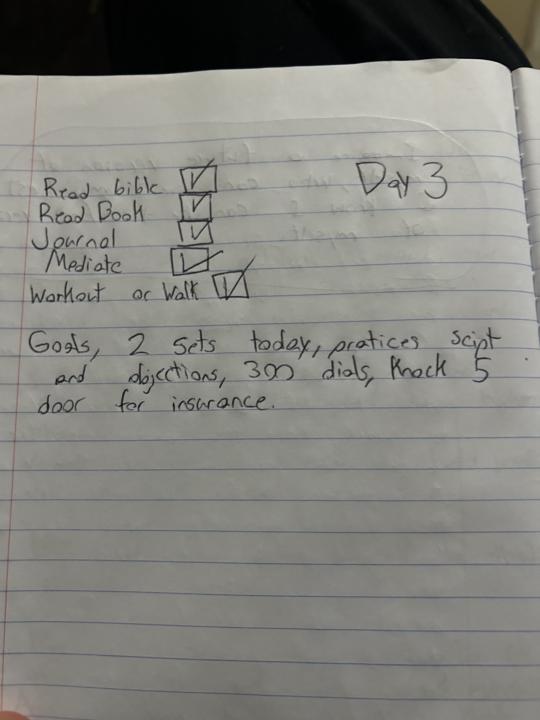 Day 3
Read bible
Read Book
Journal
Mediate
Workout or Walk
Goals, 2 sets today, pratices scipt
and objections, 300 dials, Knock 5
door for insurance.